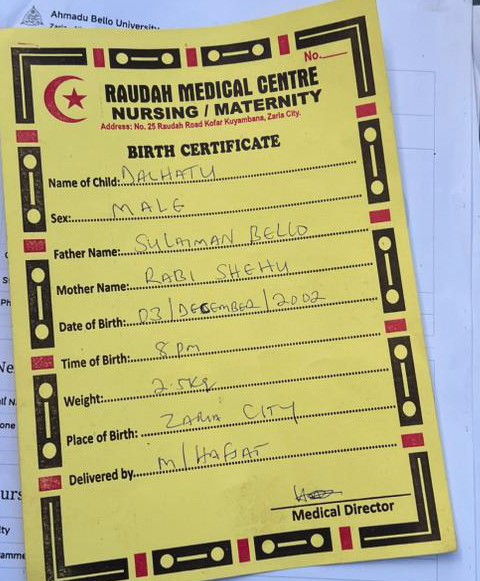 Ahmadu Bello University
No.
RAUDAH MEDICAL CENTRE
NURSING / MATERNITY
Address: No. 25 Raudah Road Kofar Kuyambana, Zaria City.
BIRTH CERTIFICATE
Name of Child: DALHATU
Sex: MALE
Father Name: SULAIMAN BELLO
Mother Name: RABI SHEHU
Date of Birth: 03/DECEMBER/2002
Time of Birth: 8 pm
Weight: 2.5Kg
Place of Birth: ZARIA CITY
Delivered by M/HAFSAT
Medical Director